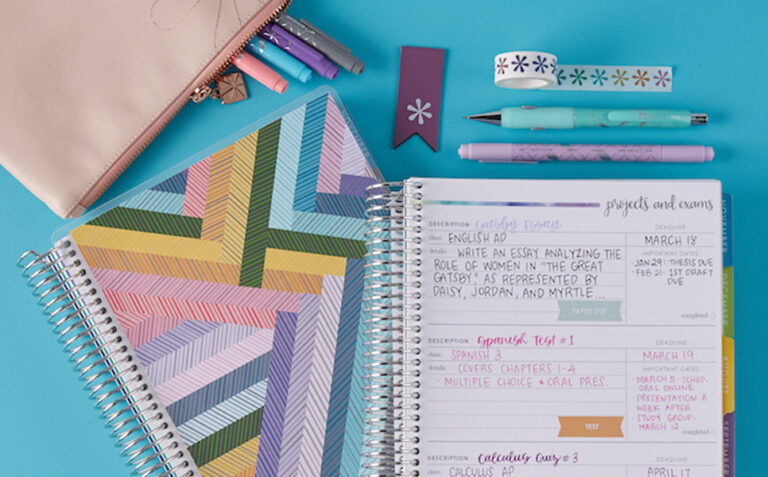 projects and exams
DESCRIPTION Gatsby Essay DEADLINE
class: ENGLISH AP MARCH 18
details: WRITE AN ESSAY ANALYZING THE IMPORTANT DATES
ROLE OF WOMEN IN "THE GREAT · JAN 29: THESIS DUE
GATSBY," AS REPRESENTED BY · FEB 21: 1ST DRAFT
DAISY, JORDAN, AND MYRTLE... DUE
PAPER DUE
completed
DESCRIPTION Spanish Test #1 DEADLINE
class: SPANISH 3 MARCH 19
details: · COVERS CHAPTERS 1-4 IMPORTANT DATES
· MULTIPLE CHOICE & ORAL PRES. · MARCH 5: SCHED.
ORAL ONLINE
PRESENTATION A
WEEK AFTER
STUDY GROUP:
TEST MARCH 12
completed
DESCRIPTION Calculus Quiz #3 DEADLINE
class: CALCULUS AP APRIL 17
AUGUST
SEPTEMBER